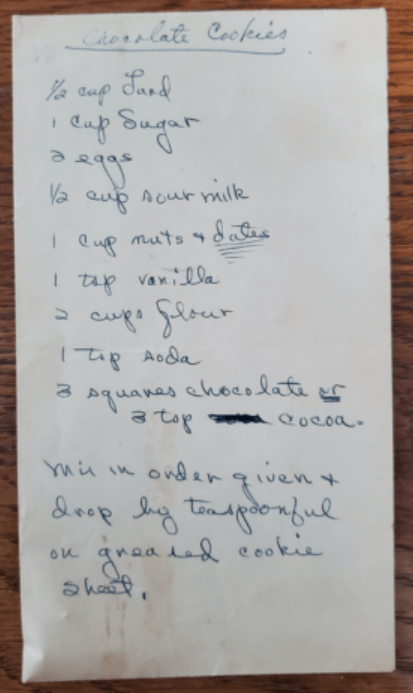 Chocolate Cookies
1/2 cup Lard
1 cup Sugar
2 eggs
1/2 cup sour milk
1 cup nuts + dates
1 tsp vanilla
2 cups flour
1 tsp soda
3 squares chocolate or
3 tsp cocoa.
Mix in order given +
drop by teaspoonful
on greased cookie
sheet.